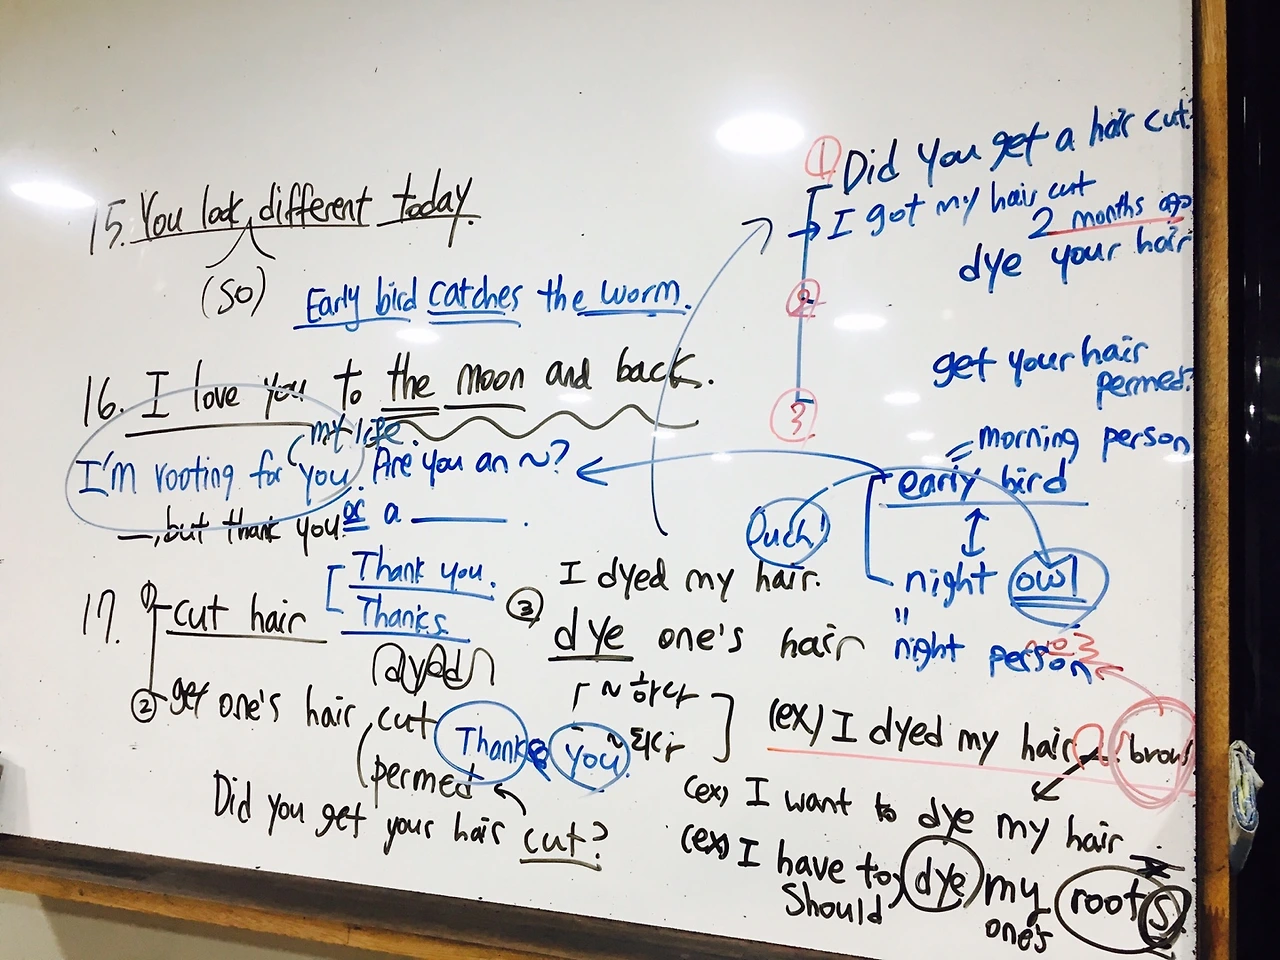 15. You look different today.
(so)
Early bird catches the worm.
16. I love you to the moon and back.
my life.
I'm rooting for you. Are you an ~?
—, but thank you. or a ______.
Thank you.
Thanks.
17. ① cut hair
dyed
② get one's hair cut
permed
Thank you.
Did you get your hair cut?
① Did you get a hair cut?
→ I got my hair cut
2 months ago
dye your hair
②
get your hair
permed?
③
= morning person
early bird
Ouch!
↕
night owl
"
night person
I dyed my hair.
③ dye one's hair
~하다
~되다
(ex) I dyed my hair brown
(ex) I want to dye my hair
(ex) I have to dye my roots
should
one's